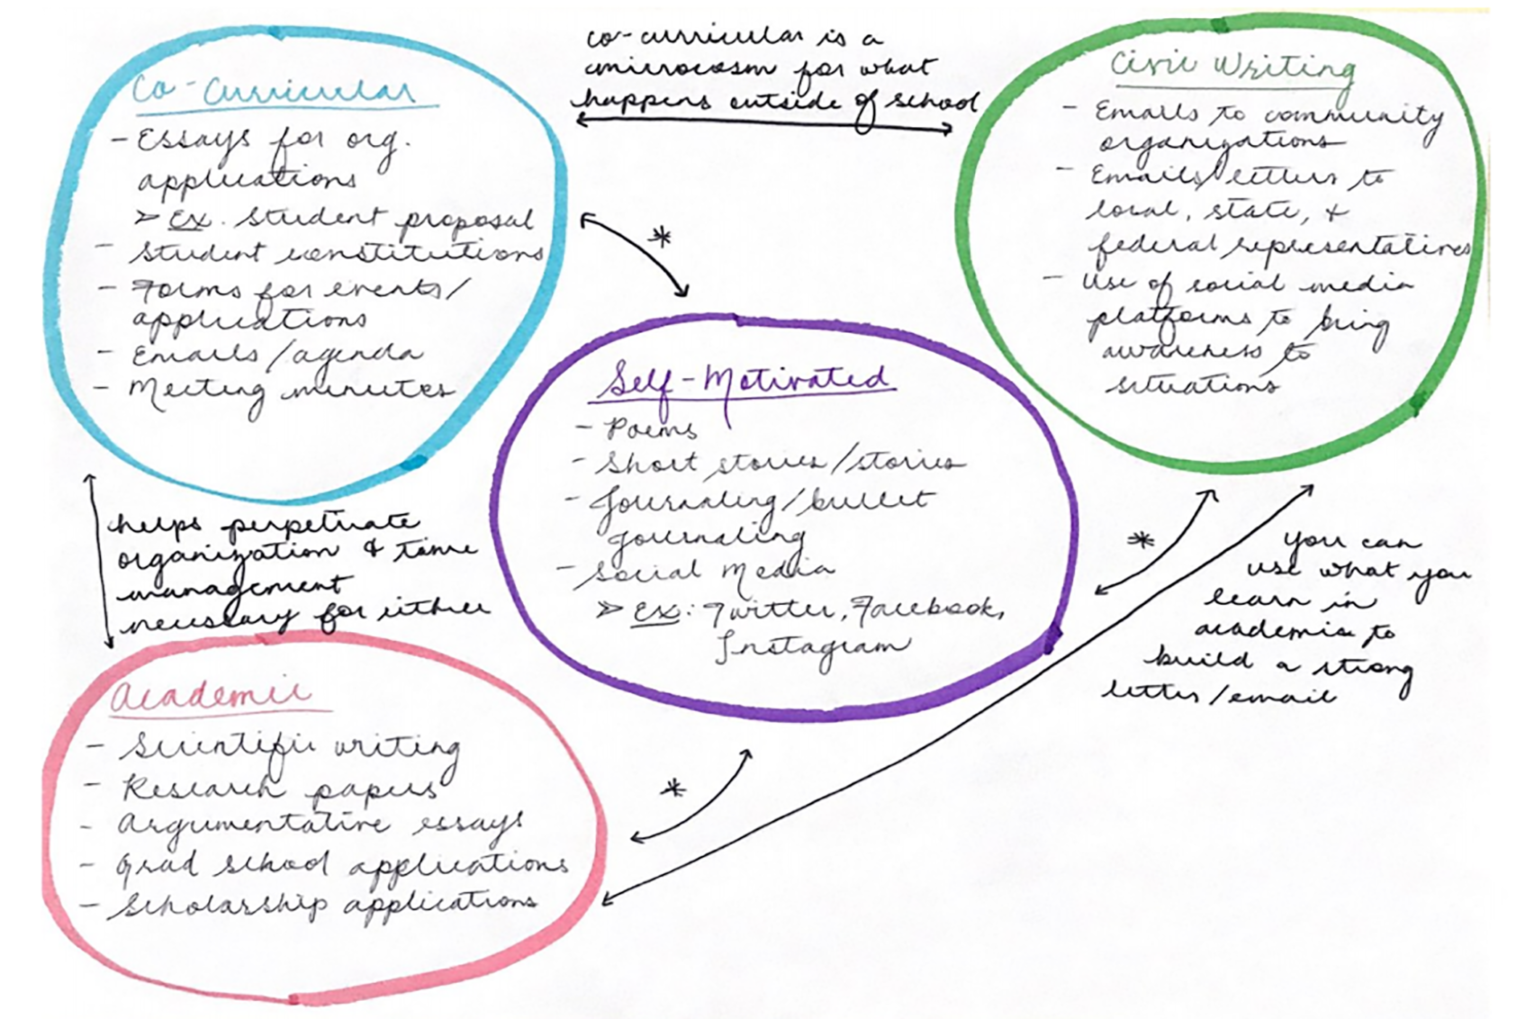 Co-Curricular
- Essays for org.
applications
> Ex. Student proposal
- Student constitutions
- Forms for events/
applications
- Emails/agenda
- Meeting minutes
co-curricular is a
microcosm for what
happens outside of school
Civic Writing
- Emails to community
organizations
- Emails/letters to
local, state, &
federal representatives
- Use of social media
platforms to bring
awareness to
situations
*
Self-Motivated
- Poems
- Short stories/stories
- Journaling/bullet
journaling
- Social Media
> Ex: Twitter, Facebook,
Instagram
helps perpetuate
organization & time
management
necessary for either
*
you can
use what you
learn in
academia to
build a strong
letter/email
Academic
- Scientific writing
- Research papers
- Argumentative essays
- Grad school applications
- Scholarship applications
*